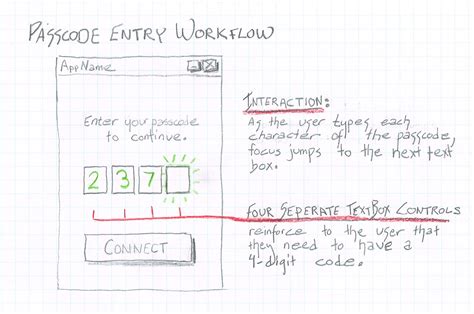 PASSCODE ENTRY WORKFLOW
AppName
Enter your passcode
to continue.
2 3 7
CONNECT
INTERACTION:
As the user types each
character of the passcode,
focus jumps to the next text
box.
FOUR SEPERATE TEXTBOX CONTROLS
reinforce to the user that
they need to have a
4-digit code.